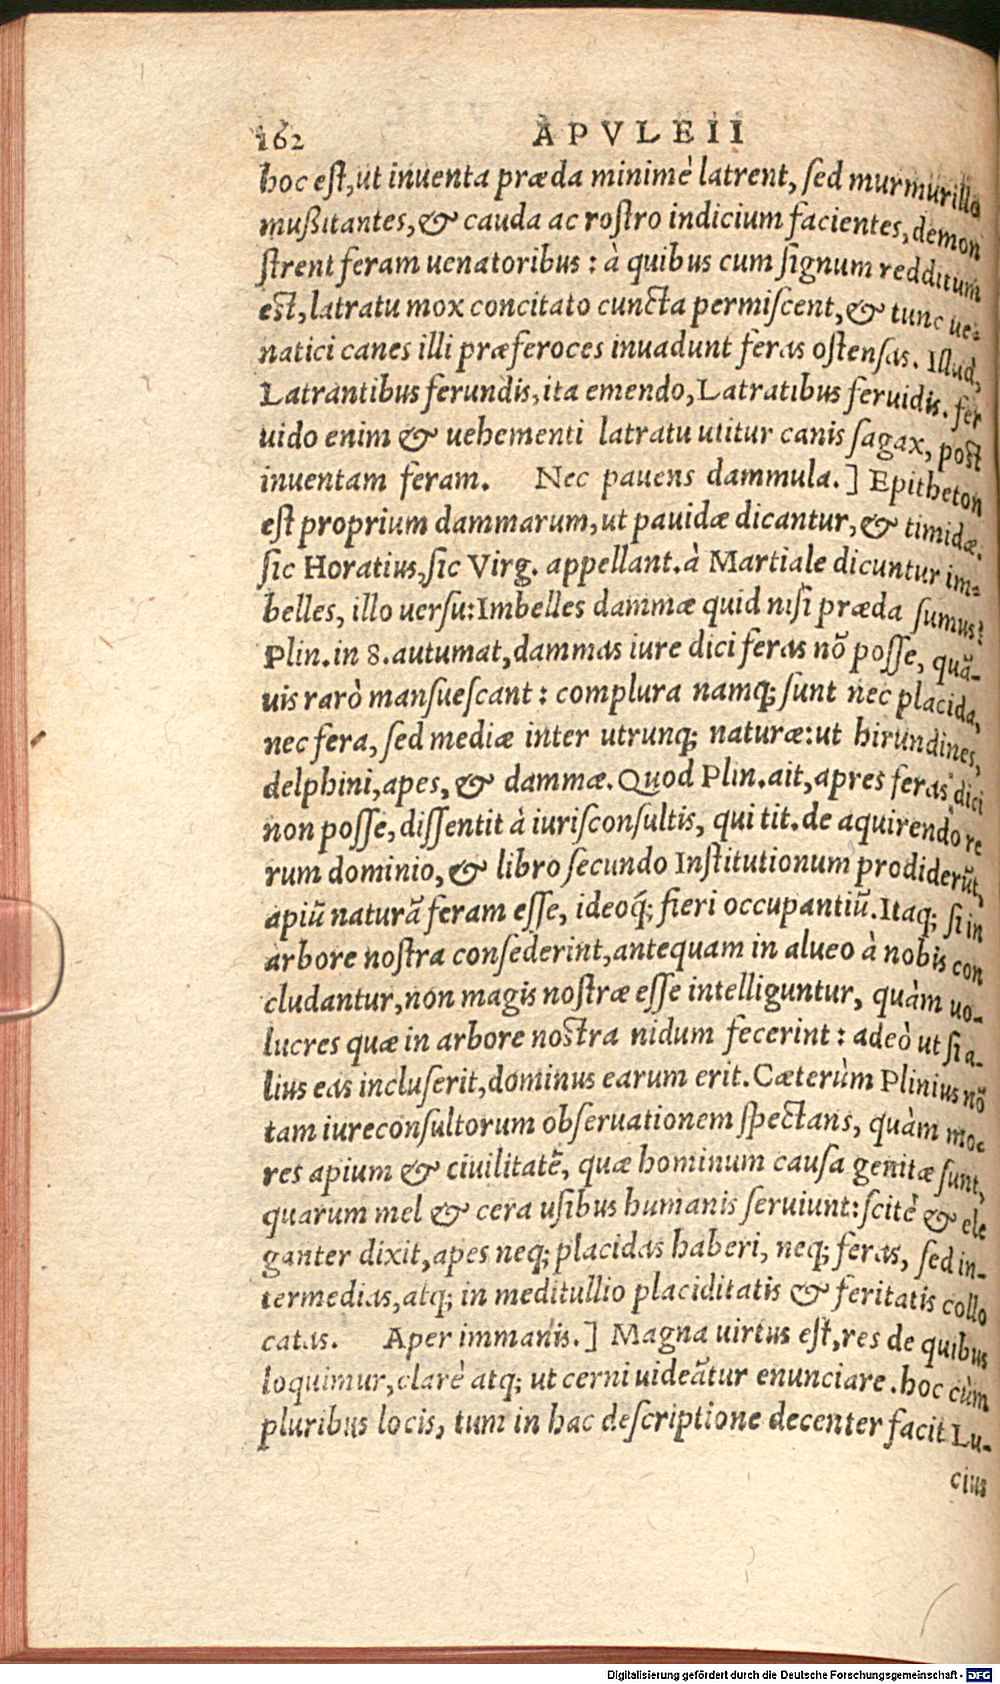 162 APVLEII
hoc est, ut inuenta præda minimè latrent, sed murmurillo
mußitantes, & cauda ac rostro indicium facientes, demon
strent feram uenatoribus: à quibus cum signum redditum
est, latratu mox concitato cuncta permiscent, & tunc ue-
natici canes illi præferoces inuadunt feras ostensas. Illud,
Latrantibus ferundis, ita emendo, Latratibus feruidis. fer
uido enim & uehementi latratu utitur canis sagax, post
inuentam feram. Nec pauens dammula.] Epitheton
est proprium dammarum, ut pauidæ dicantur, & timidæ.
sic Horatius, sic Virg. appellant. à Martiale dicuntur im-
belles, illo uersu: Imbelles dammæ quid nisi præda sumus?
Plin. in 8. autumat, dammas iure dici feras nõ posse, quã-
uis rarò mansuescant: complura namq; sunt nec placida,
nec fera, sed mediæ inter utrunq; naturæ: ut hirundines,
delphini, apes, & dammæ. Quod Plin. ait, apres feras dici
non posse, dissentit à iurisconsultis, qui tit. de aquirendo re
rum dominio, & libro secundo Institutionum prodiderũt,
apiũ naturã feram esse, ideoq́; fieri occupantiũ. Itaq; si in
arbore nostra consederint, antequam in alueo à nobis con
cludantur, non magis nostræ esse intelliguntur, quàm uo-
lucres quæ in arbore nostra nidum fecerint: adeò ut si a-
lius eas incluserit, dominus earum erit. Cæterùm Plinius nõ
tam iureconsultorum obseruationem spectans, quàm mo-
res apium & ciuilitatẽ, quæ hominum causa genitæ sunt,
quarum mel & cera usibus humanis seruiunt: scitè & ele
ganter dixit, apes neq; placidas haberi, neq; feras, sed in-
termedias, atq; in meditullio placiditatis & feritatis collo
catas. Aper immanis.] Magna uirtus est, res de quibus
loquimur, clarè atq; ut cerni uideãtur enunciare. hoc cùm
pluribus locis, tum in hac descriptione decenter facit Lu-
cius
Digitalisierung gefördert durch die Deutsche Forschungsgemeinschaft - DFG